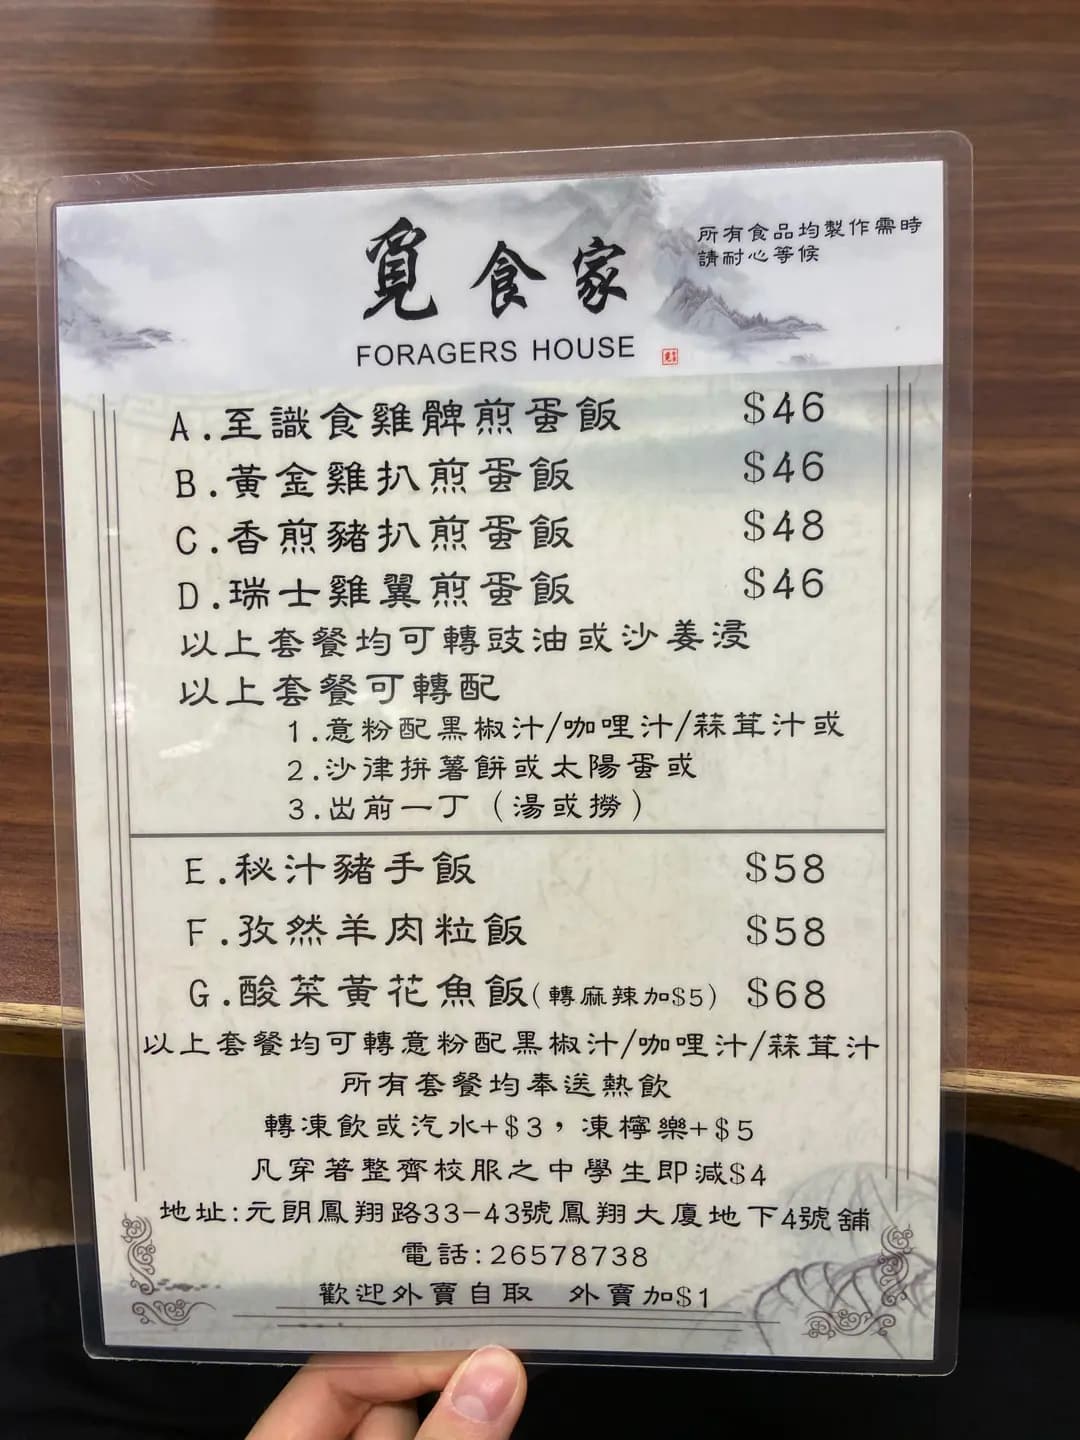 覓食家
FORAGERS HOUSE
所有食品均製作需時
請耐心等候
A.至識食雞髀煎蛋飯 $46
B.黃金雞扒煎蛋飯 $46
C.香煎豬扒煎蛋飯 $48
D.瑞士雞翼煎蛋飯 $46
以上套餐均可轉豉油或沙姜浸
以上套餐可轉配
1.意粉配黑椒汁/咖哩汁/蒜茸汁或
2.沙律拼薯餅或太陽蛋或
3.出前一丁（湯或撈）
E.秘汁豬手飯 $58
F.孜然羊肉粒飯 $58
G.酸菜黃花魚飯(轉麻辣加$5) $68
以上套餐均可轉意粉配黑椒汁/咖哩汁/蒜茸汁
所有套餐均奉送熱飲
轉凍飲或汽水+$3，凍檸樂+$5
凡穿著整齊校服之中學生即減$4
地址:元朗鳳翔路33-43號鳳翔大廈地下4號舖
電話:26578738
歡迎外賣自取 外賣加$1